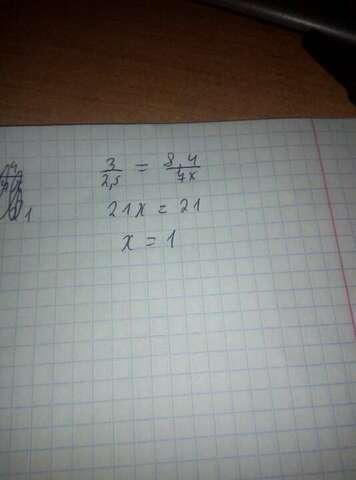 3/2,5 = 8,4/7x
21x = 21
x = 1